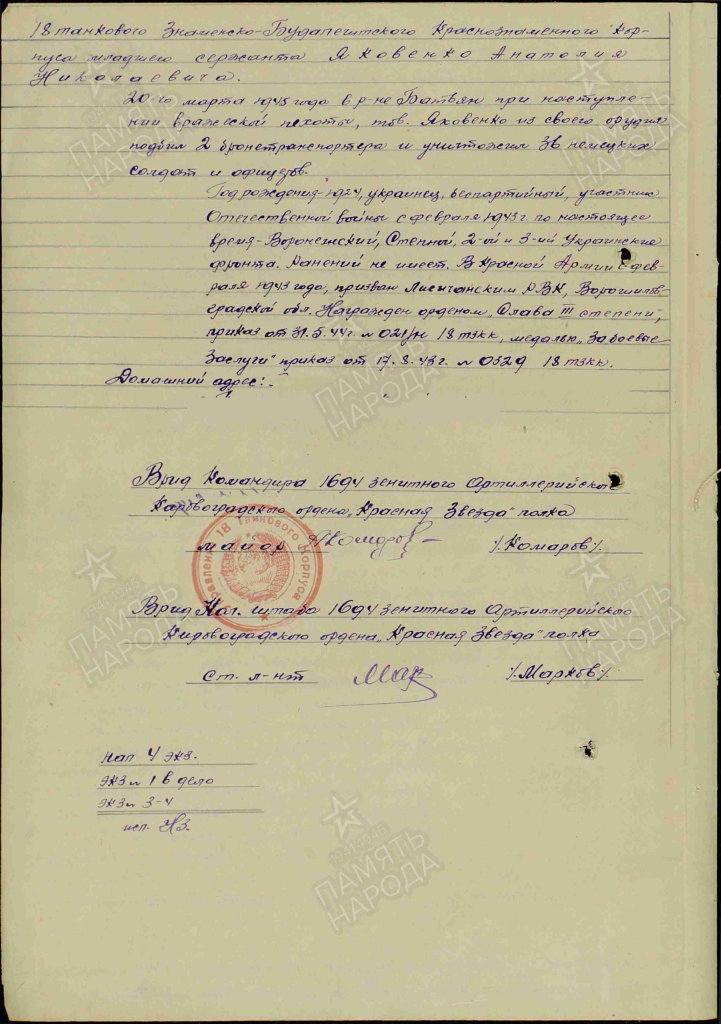 18 танкового Знаменско-Будапештского Краснознаменного Кор-
пуса младшего сержанта Яковенко Анатолия
Николаевича.
20-го марта 1945 года в р-не Батьян при наступле-
нии вражеской пехоты, тов. Яковенко из своего орудия
подбил 2 бронетранспортера и уничтожил 36 немецких
солдат и офицеров.
Год рождения-1924, украинец, беспартийный, участник
Отечественной войны с февраля 1943 г. по настоящее
время-Воронежский, Степной, 2-ой и 3-ий Украинские
фронта. Ранений не имеет. В Красной Армии с фев-
раля 1943 года, призван Лисичанским РВК, Ворошилов-
градской обл. Награжден орденом „Слава III степени",
приказ от 31.5.44г. № 021/н 18 тзкк, медалью „За боевые
Заслуги" приказ от 17.8.43г. № 0329 18 тзкк.
Домашний адрес:
Врид Командира 1694 зенитного Артиллерийского
Кировоградского ордена „Красная Звезда" полка
майор /Комаров/.
Управление 18 Танкового Корпуса
Врид Нач. штаба 1694 зенитного Артиллерийского
Кировоградского ордена „Красная Звезда" полка
Ст. л-нт Мар /Марков/.
нап. 4 экз.
экз № 1 в дело
экз № 3-4
исп. НЗ.
ПАМЯТЬ
НАРОДА